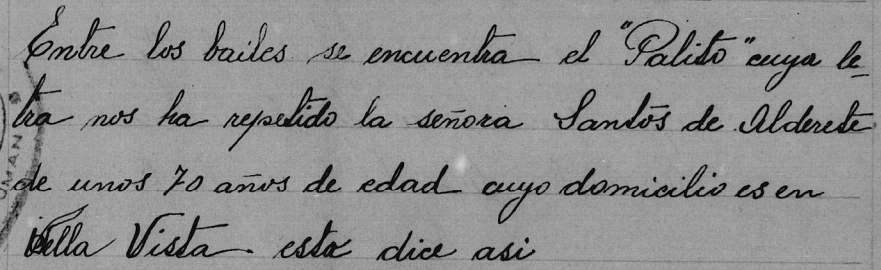 Entre los bailes se encuentra el "Palito" cuya le-
tra nos ha repetido la señora Santos de Alderete
de unos 70 años de edad cuyo domicilio es en
Bella Vista. esta dice asi
UMAN